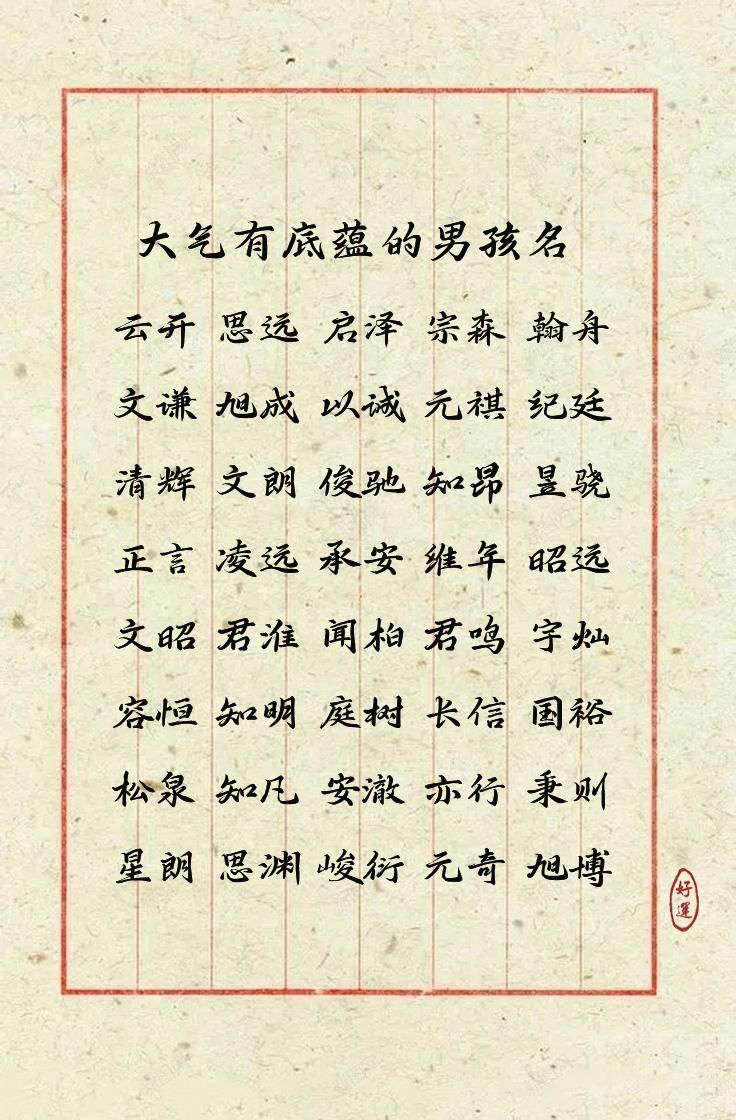 大气有底蕴的男孩名
云开 思远 启泽 宗森 翰舟
文谦 旭成 以诚 元祺 纪廷
清辉 文朗 俊驰 知昂 昱骁
正言 凌远 承安 维年 昭远
文昭 君淮 闻柏 君鸣 宇灿
容恒 知明 庭树 长信 国裕
松泉 知凡 安澈 亦行 秉则
星朗 思渊 峻衍 元奇 旭博
好運